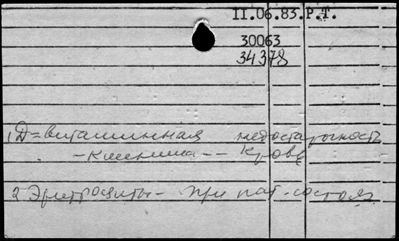 II.06.83.Р.Т.
30063
34378
1 Д-витаминная недостаточность
- Клиника -- Кровь
2 Эритроциты - При пат. состоя